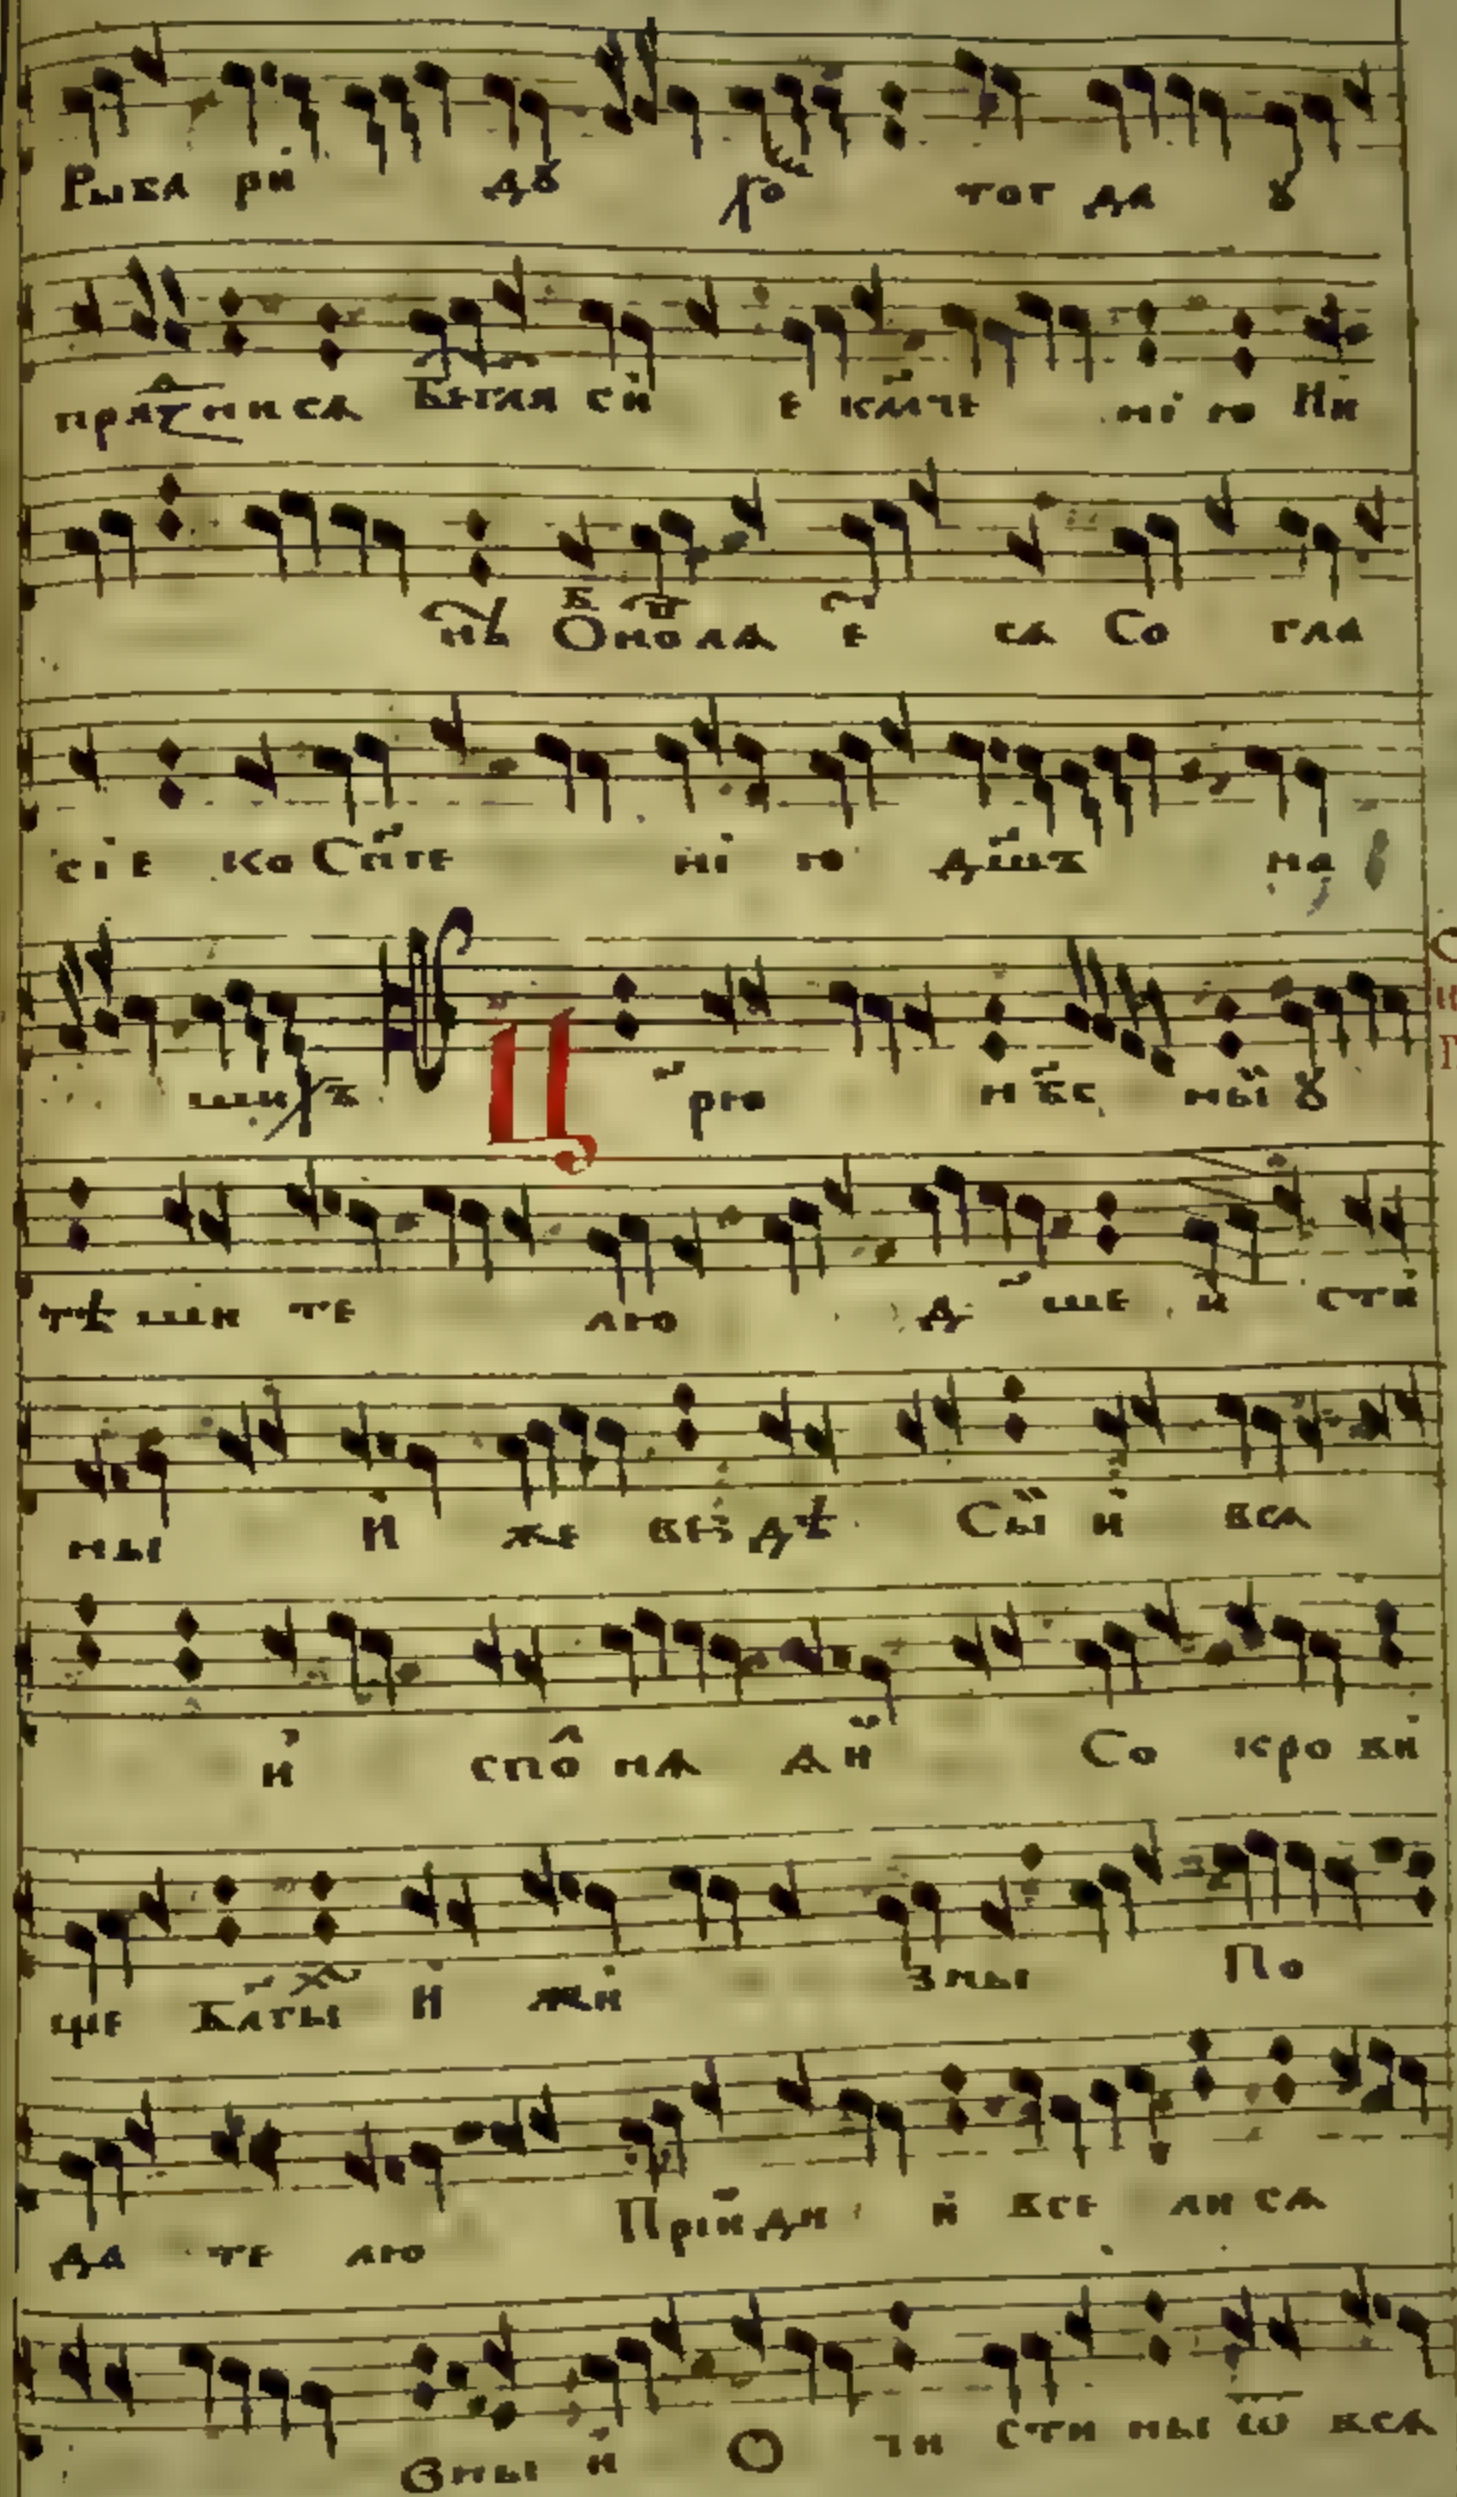 Рыба ри дꙋ хо тог да ꙋ
пра ни сѧ Бг҃ла си е кличе ні ю Ни
нѣ Оно лѧ е сѧ Со гла
сі е ко Сп҃те ні ю дш҃ъ на
ши х
Цр҃ю нб҃с ный ꙋ
тѣ ши те лю д҃ше и сти
ны И же везд ѣ Сый и всѧ
и спо нѧ ѧй Со кро ви
ще Бл҃гы х И жи зны По
да те лю Пріиди и все ли сѧ
ѳ ны и О чи сти ны ѿ всѧ